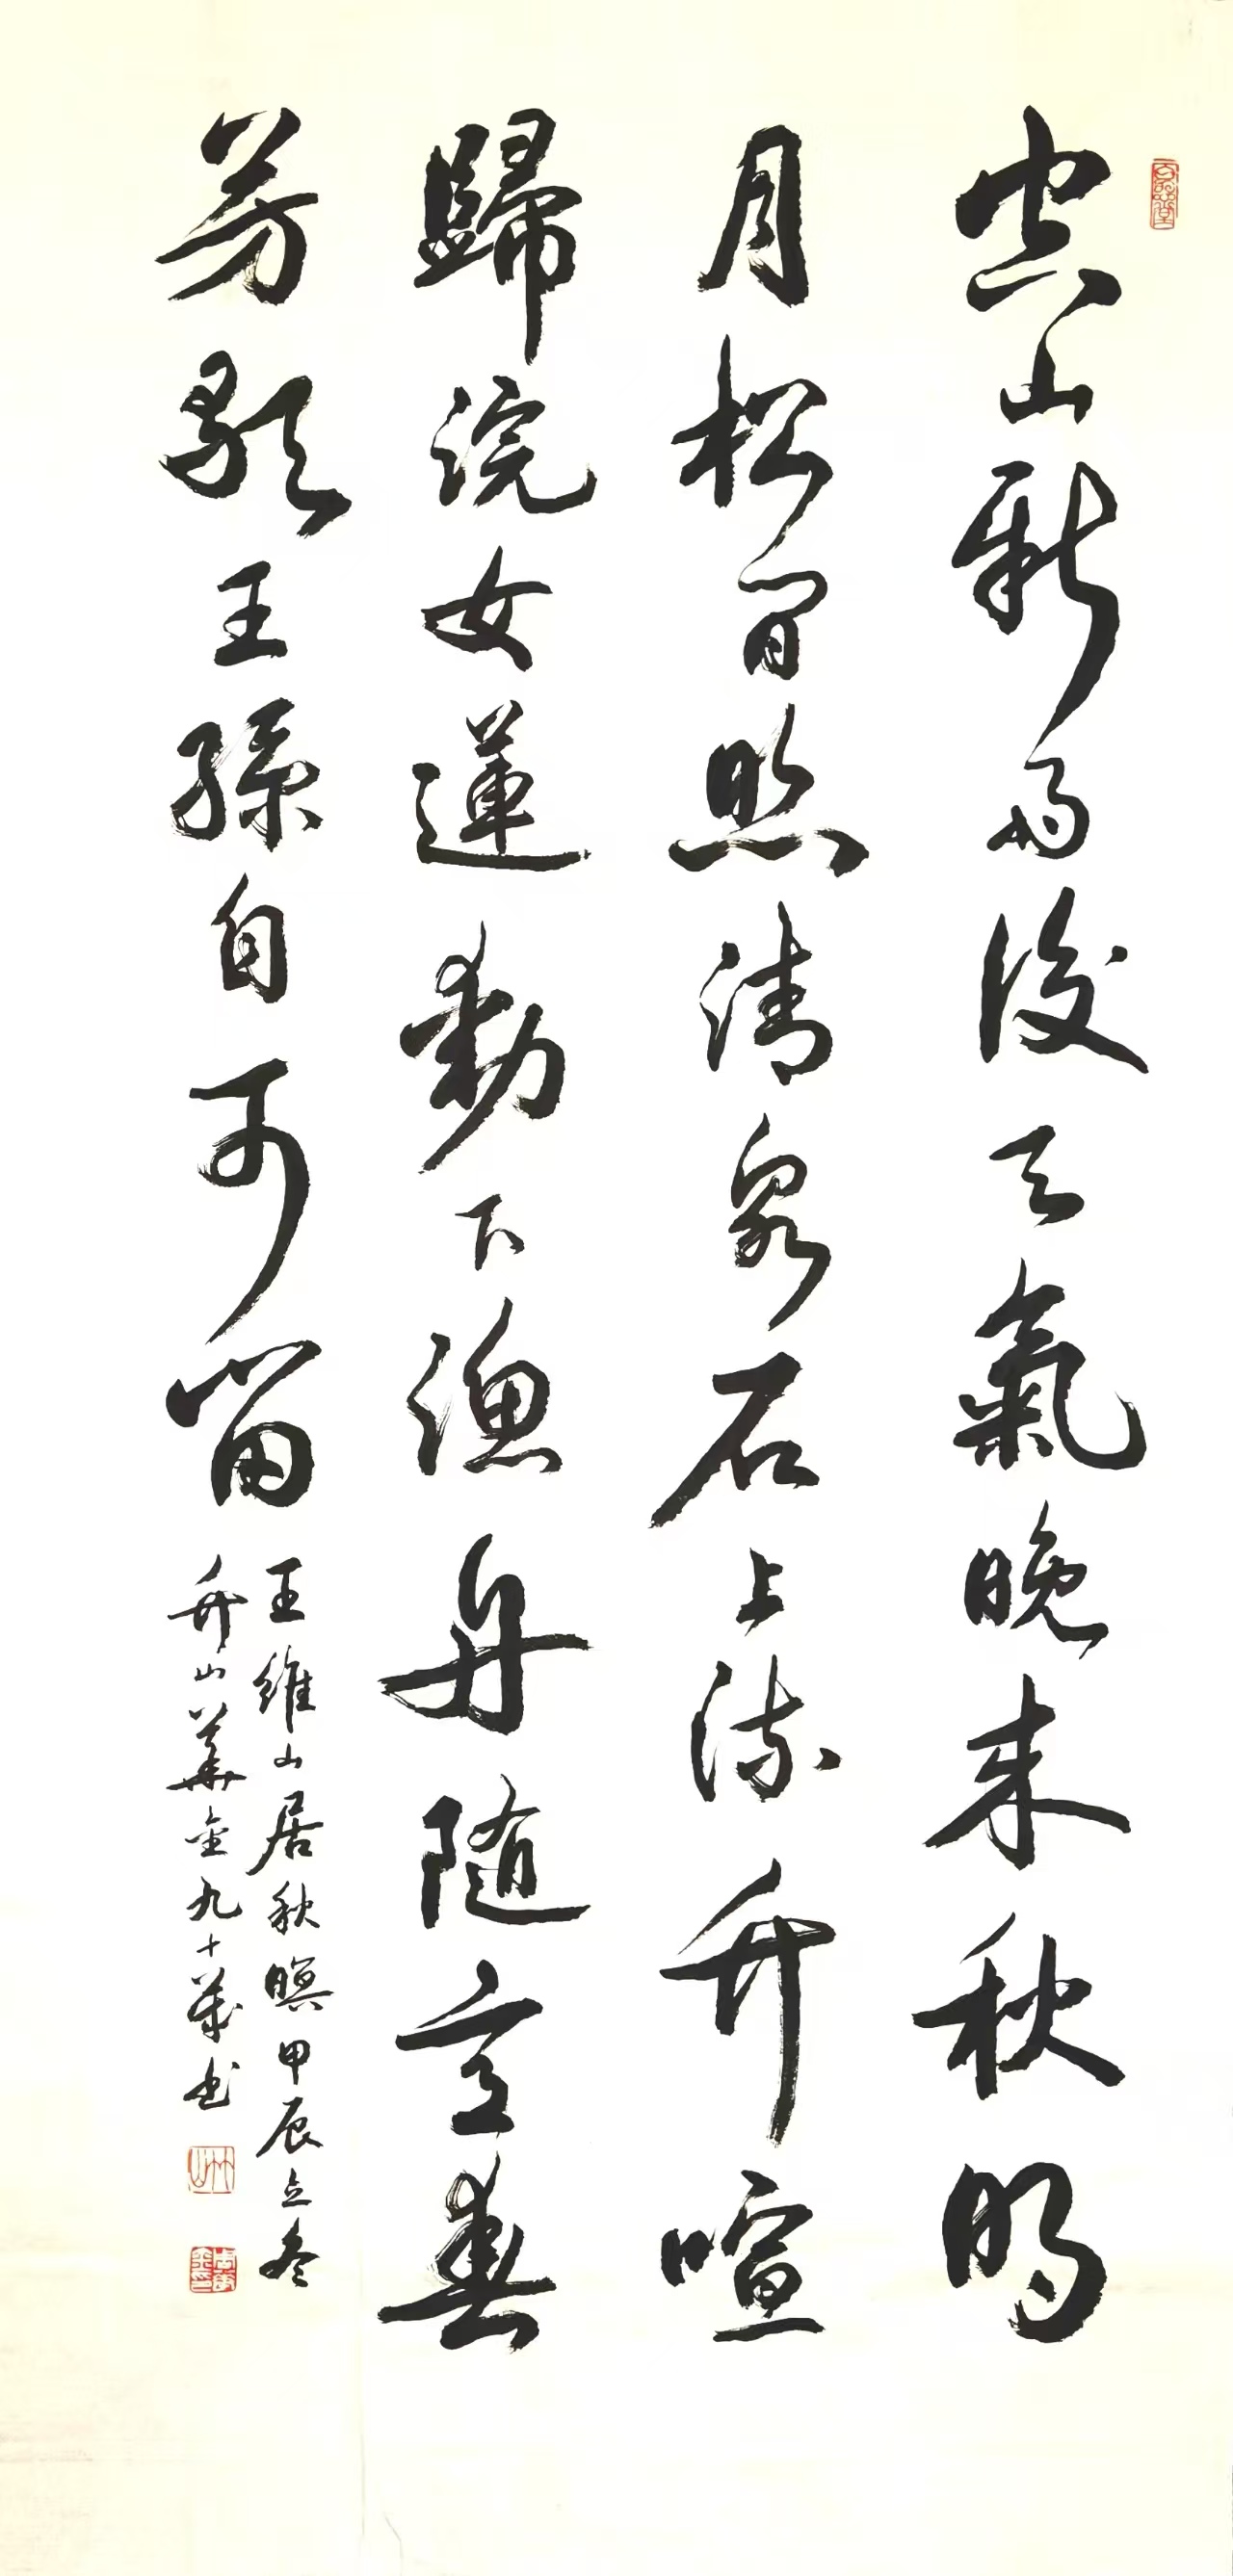 空山新雨後天氣晚来秋明
月松间照清泉石上流竹喧
歸浣女蓮動下漁舟随意春
芳歇王孫自可留
王維山居秋暝甲辰立冬
竹山華金九十歲书
竹山